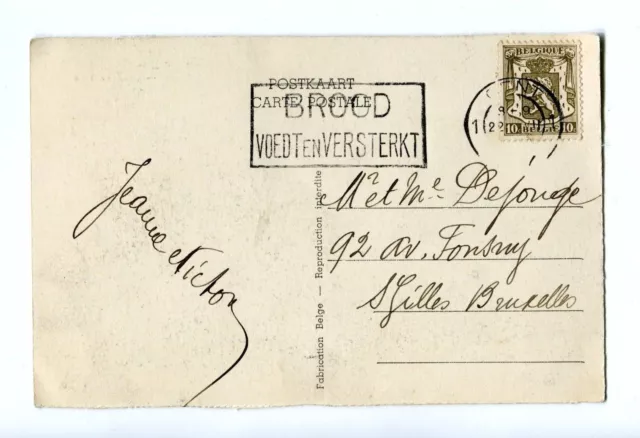 POSTKAART
CARTE POSTALE
BROOD
VOEDT EN VERSTERKT
BELGIQUE
10 BELGIE 10
Jeanne et Victor
Mr et Me Dejonge
92 Av. Fonsny
St Gilles Bruxelles
Fabrication Belge — Reproduction interdite